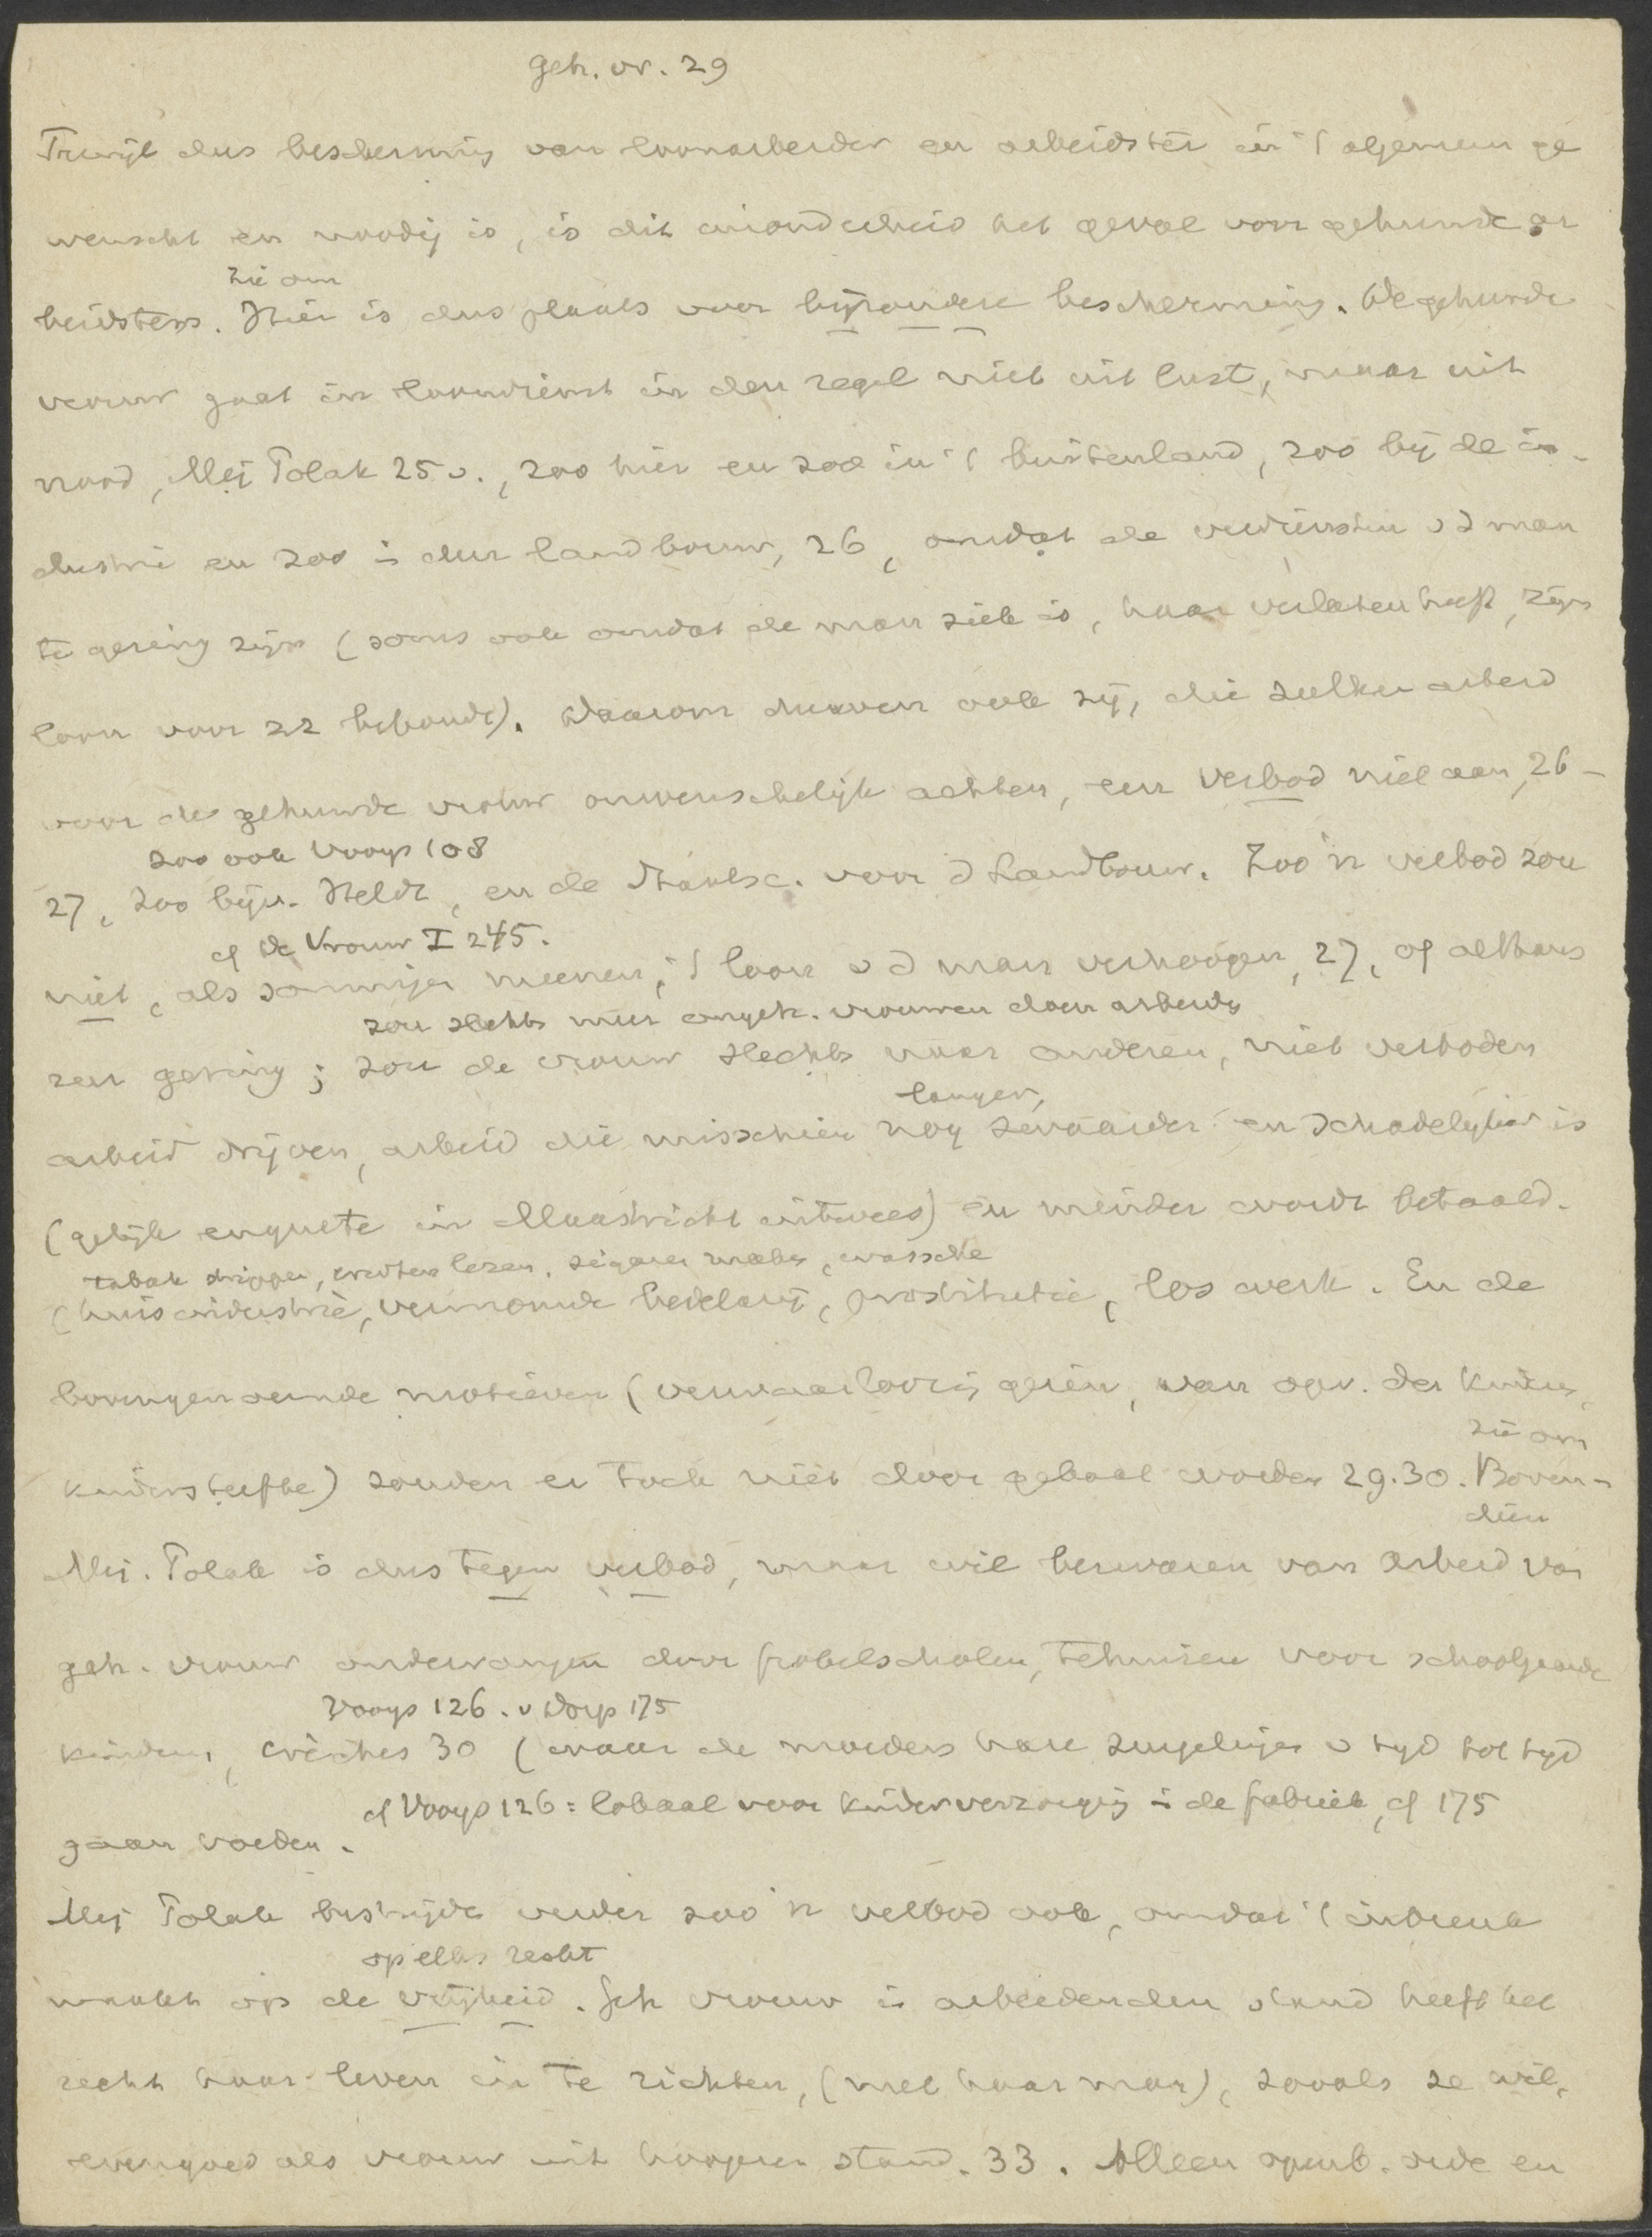 Geh. vr. 29
Terwijl dus bescherming van loonarbeider en arbeidster in 't algemeen ge
wenscht en noodig is, is dit inzonderheid het geval voor gehuwde ar
zie om
beidsters. Hier is dus plaats voor bijzondere bescherming. De gehuwde
vrouw gaat in loondienst in den regel niet uit lust, maar uit
nood, Mej Polak 25 v., zoo hier en zoo in 't buitenland, zoo bij de in-
dustrie en zoo i den landbouw, 26, omdat de verdiensten v d man
te gering zijn (soms ook omdat de man ziek is, haar verlaten heeft, zijn
loon voor zz behoudt). Daarom durven ook zij, die zulken arbeid
voor de gehuwde vrouw onwenschelijk achten, een verbod niet aan, 26-
zoo ook Vooys 108
27, zoo bijv. Heldt, en de Maatsc. voor d Landbouw. Zoo'n verbod zou
cf de Vrouw I 245.
niet, als sommigen meenen, 't loon v d man verhoogen, 27, of althans
zou slechts meer ongeh. vrouwen doen arbeiden
zeer gering; zou de vrouw slechts naar anderen, niet verboden
langer,
arbeid drijven, arbeid die misschien nog zwaarder en schadelijker is
(gelijk enquete in Maastricht uitwees) en minder wordt betaald.
tabak strippen, erwten lezen, sigaren maken, wassche
(huisindustrie, vermomde bedelarij, prostitutie, los werk. En de
bovengenoemde motieven (verwaarloozing gezin, van opv. der kinderen,
zie om
kindersterfte) zouden er toch niet door gebaat worden 29.30. Boven-
dien
Mej. Polak is dus tegen verbod, maar wil bezwaren van arbeid van
geh. vrouw ondervangen door frobelscholen, tehuizen voor schoolgaande
Vooys 126. v Dorp 175
kinderen, crèches 30 (waar de moeders hare zuigelingen v tyd tot tyd
cf Vooys 126: lokaal voor kinderverzorging i de fabriek, cf 175
gaan voeden.
Mej Polak bestrijdt verder zoo'n verbod ook, omdat 't inbreuk
op elks recht
maakt op de vrijheid. Geh vrouw i arbeidenden stand heeft het
recht haar leven in te richten, (met haar man), zooals ze wil,
evengoed als vrouw uit hoogeren stand. 33. Alleen openb. orde en